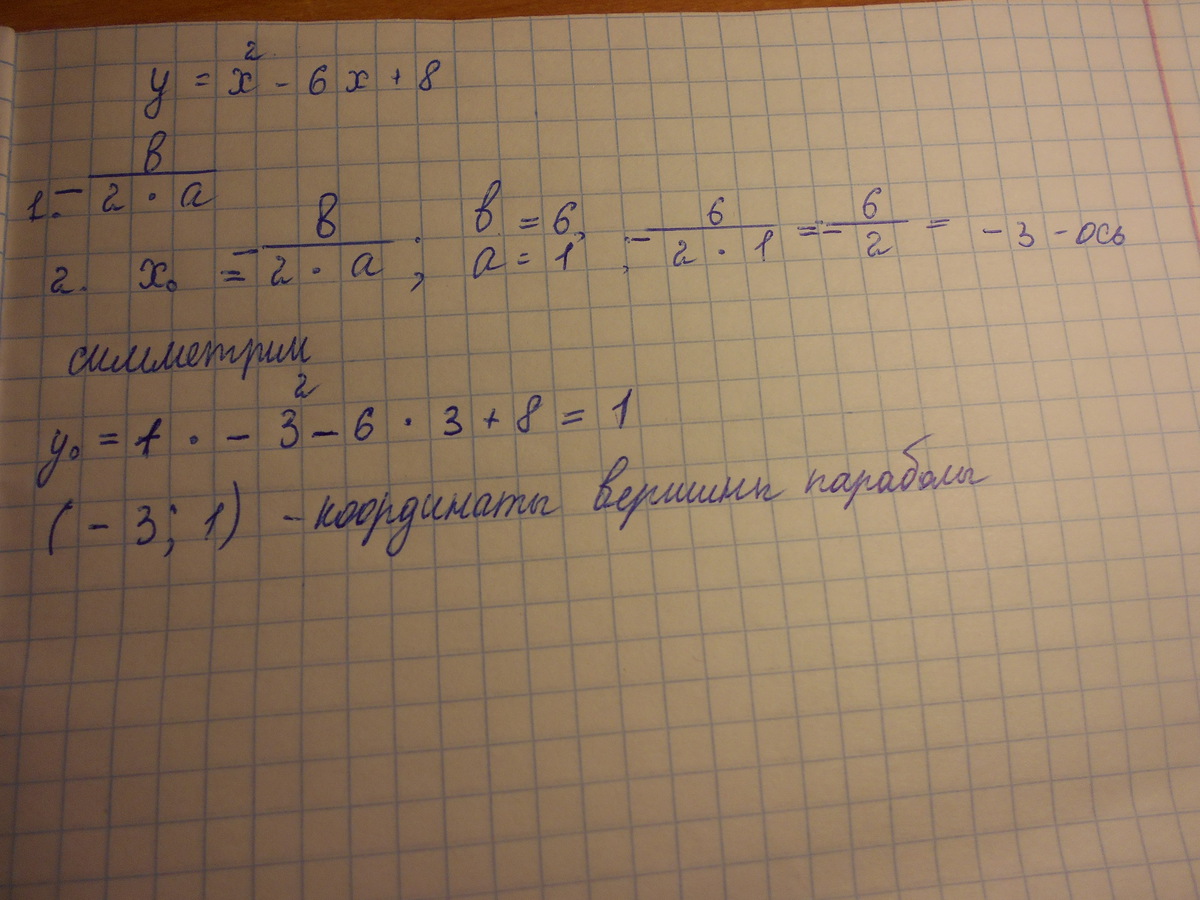 y = x² - 6x + 8
1. - в / 2 · a
2. x₀ = - в / 2 · a ; в = 6, a = 1 ; - 6 / 2 · 1 = - 6 / 2 = - 3 - ось
симметрии
y₀ = 1 · - 3² - 6 · 3 + 8 = 1
(- 3; 1) - координаты вершины параболы